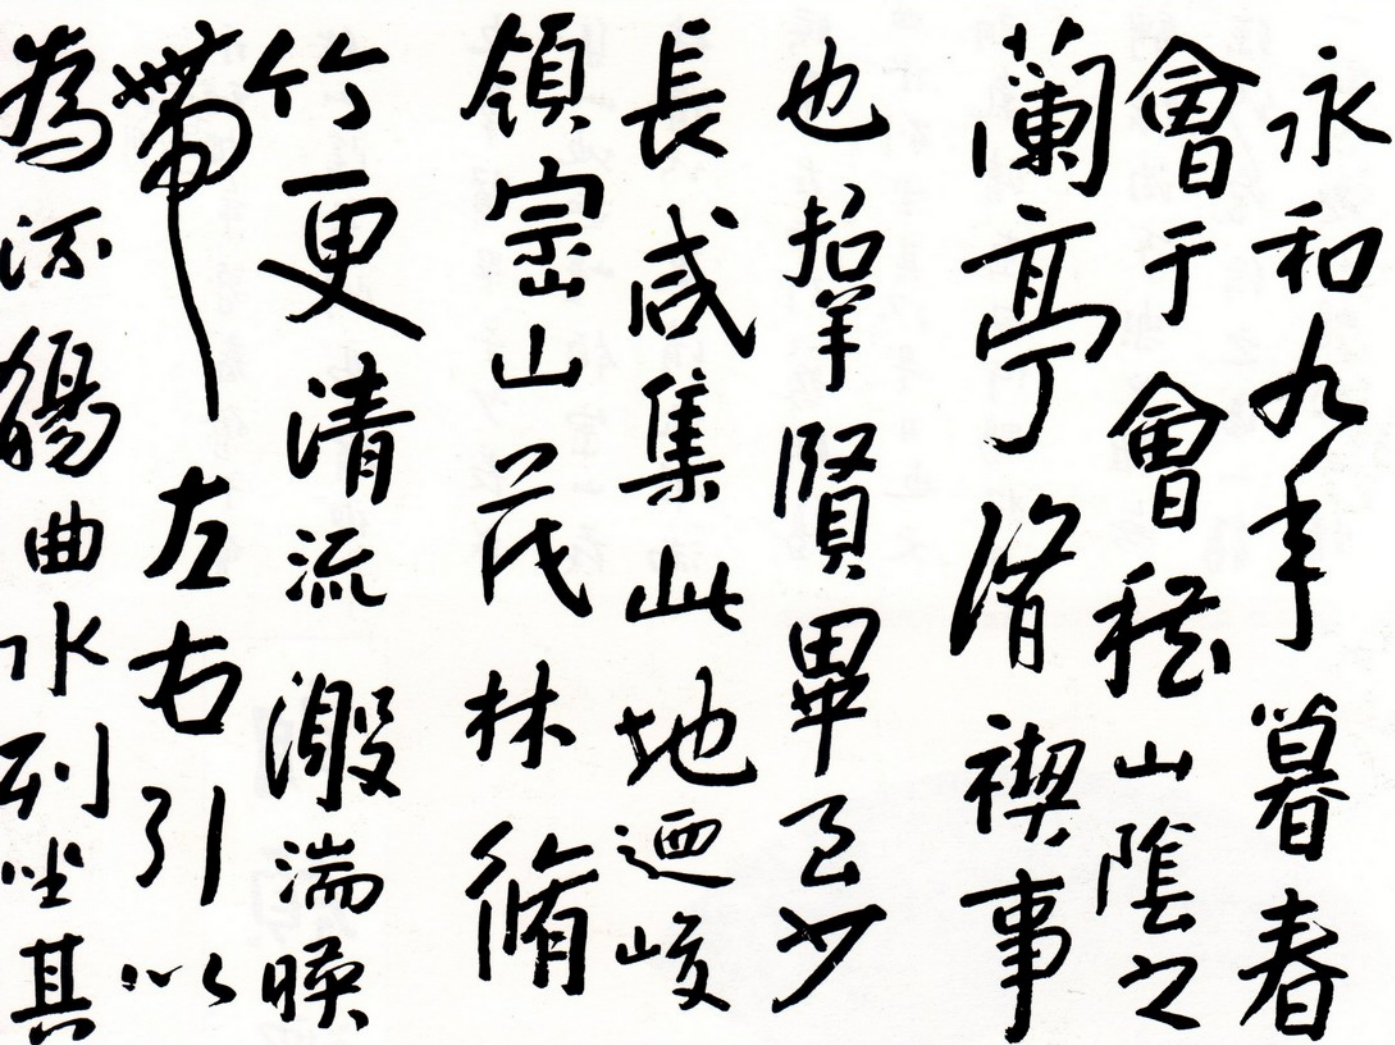 永和九年暮春
會于會稽山陰之
蘭亭脩禊事
也羣賢畢至少
長咸集此地迺峻
領崇山茂林脩
竹更清流激湍暎
帶左右引以
為流觴曲水列坐其